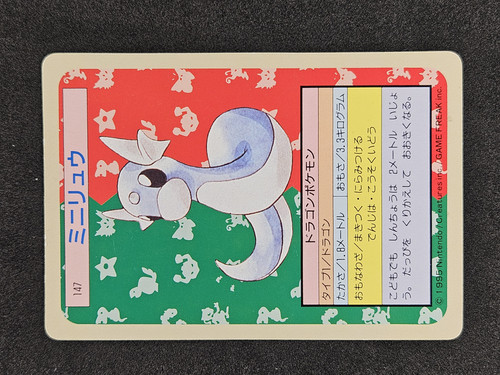 147
ミニリュウ
ドラゴンポケモン
タイプ1/ドラゴン
たかさ/1.8メートル おもさ/3.3キログラム
おもなわざ/まきつく・にらみつける
でんじは・こうそくいどう
こどもでも しんちょうは 2メートル いじょ
う。だっぴを くりかえして おおきくなる。
© 1995 Nintendo/Creatures inc./GAME FREAK inc.